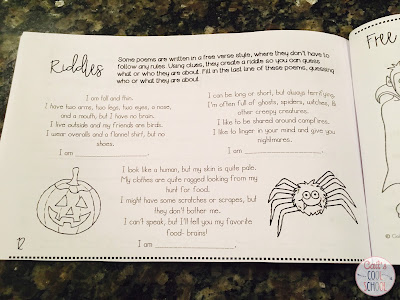 Riddles
Some poems are written in a free verse style, where they don't have to
follow any rules. Using clues, they create a riddle so you can guess
what or who they are about. Fill in the last line of these poems, guessing
who or what they are about.
I am tall and thin.
I have two arms, two legs, two eyes, a nose,
and a mouth, but I have no brain.
I live outside and my friends are birds.
I wear overalls and a flannel shirt, but no
shoes.
I am ____________________.
I can be long or short, but always terrifying.
I'm often full of ghosts, spiders, witches, &
other creepy creatures.
I like to be shared around campfires.
I like to linger in your mind and give you
nightmares.
I am ____________________.
I look like a human, but my skin is quite pale.
My clothes are quite ragged looking from my
hunt for food.
I might have some scratches or scrapes, but
they don't bother me.
I can't speak, but I'll tell you my favorite
food- brains!
I am ____________________.
12
Free
©
COOL
SCHOOL